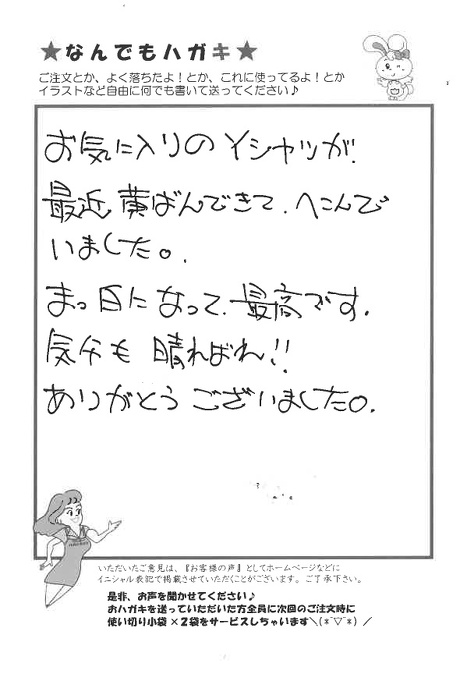 ★なんでもハガキ★
ご注文とか、よく落ちたよ！とか、これに使ってるよ！とか
イラストなど自由に何でも書いて送ってください♪
お気に入りのYシャツが、
最近 黄ばんできて、へこんで
いました。
まっ白になって、最高です。
気分も 晴ればれ!!
ありがとう ございました。
いただいたご意見は、『お客様の声』としてホームページなどに
イニシャル表記で掲載させていただくことがございます。ご了承下さい。
是非、お声を聞かせてください♪
おハガキを送っていただいた方全員に次回のご注文時に
使い切り小袋×2袋をサービスしちゃいます＼(*´▽`*)／